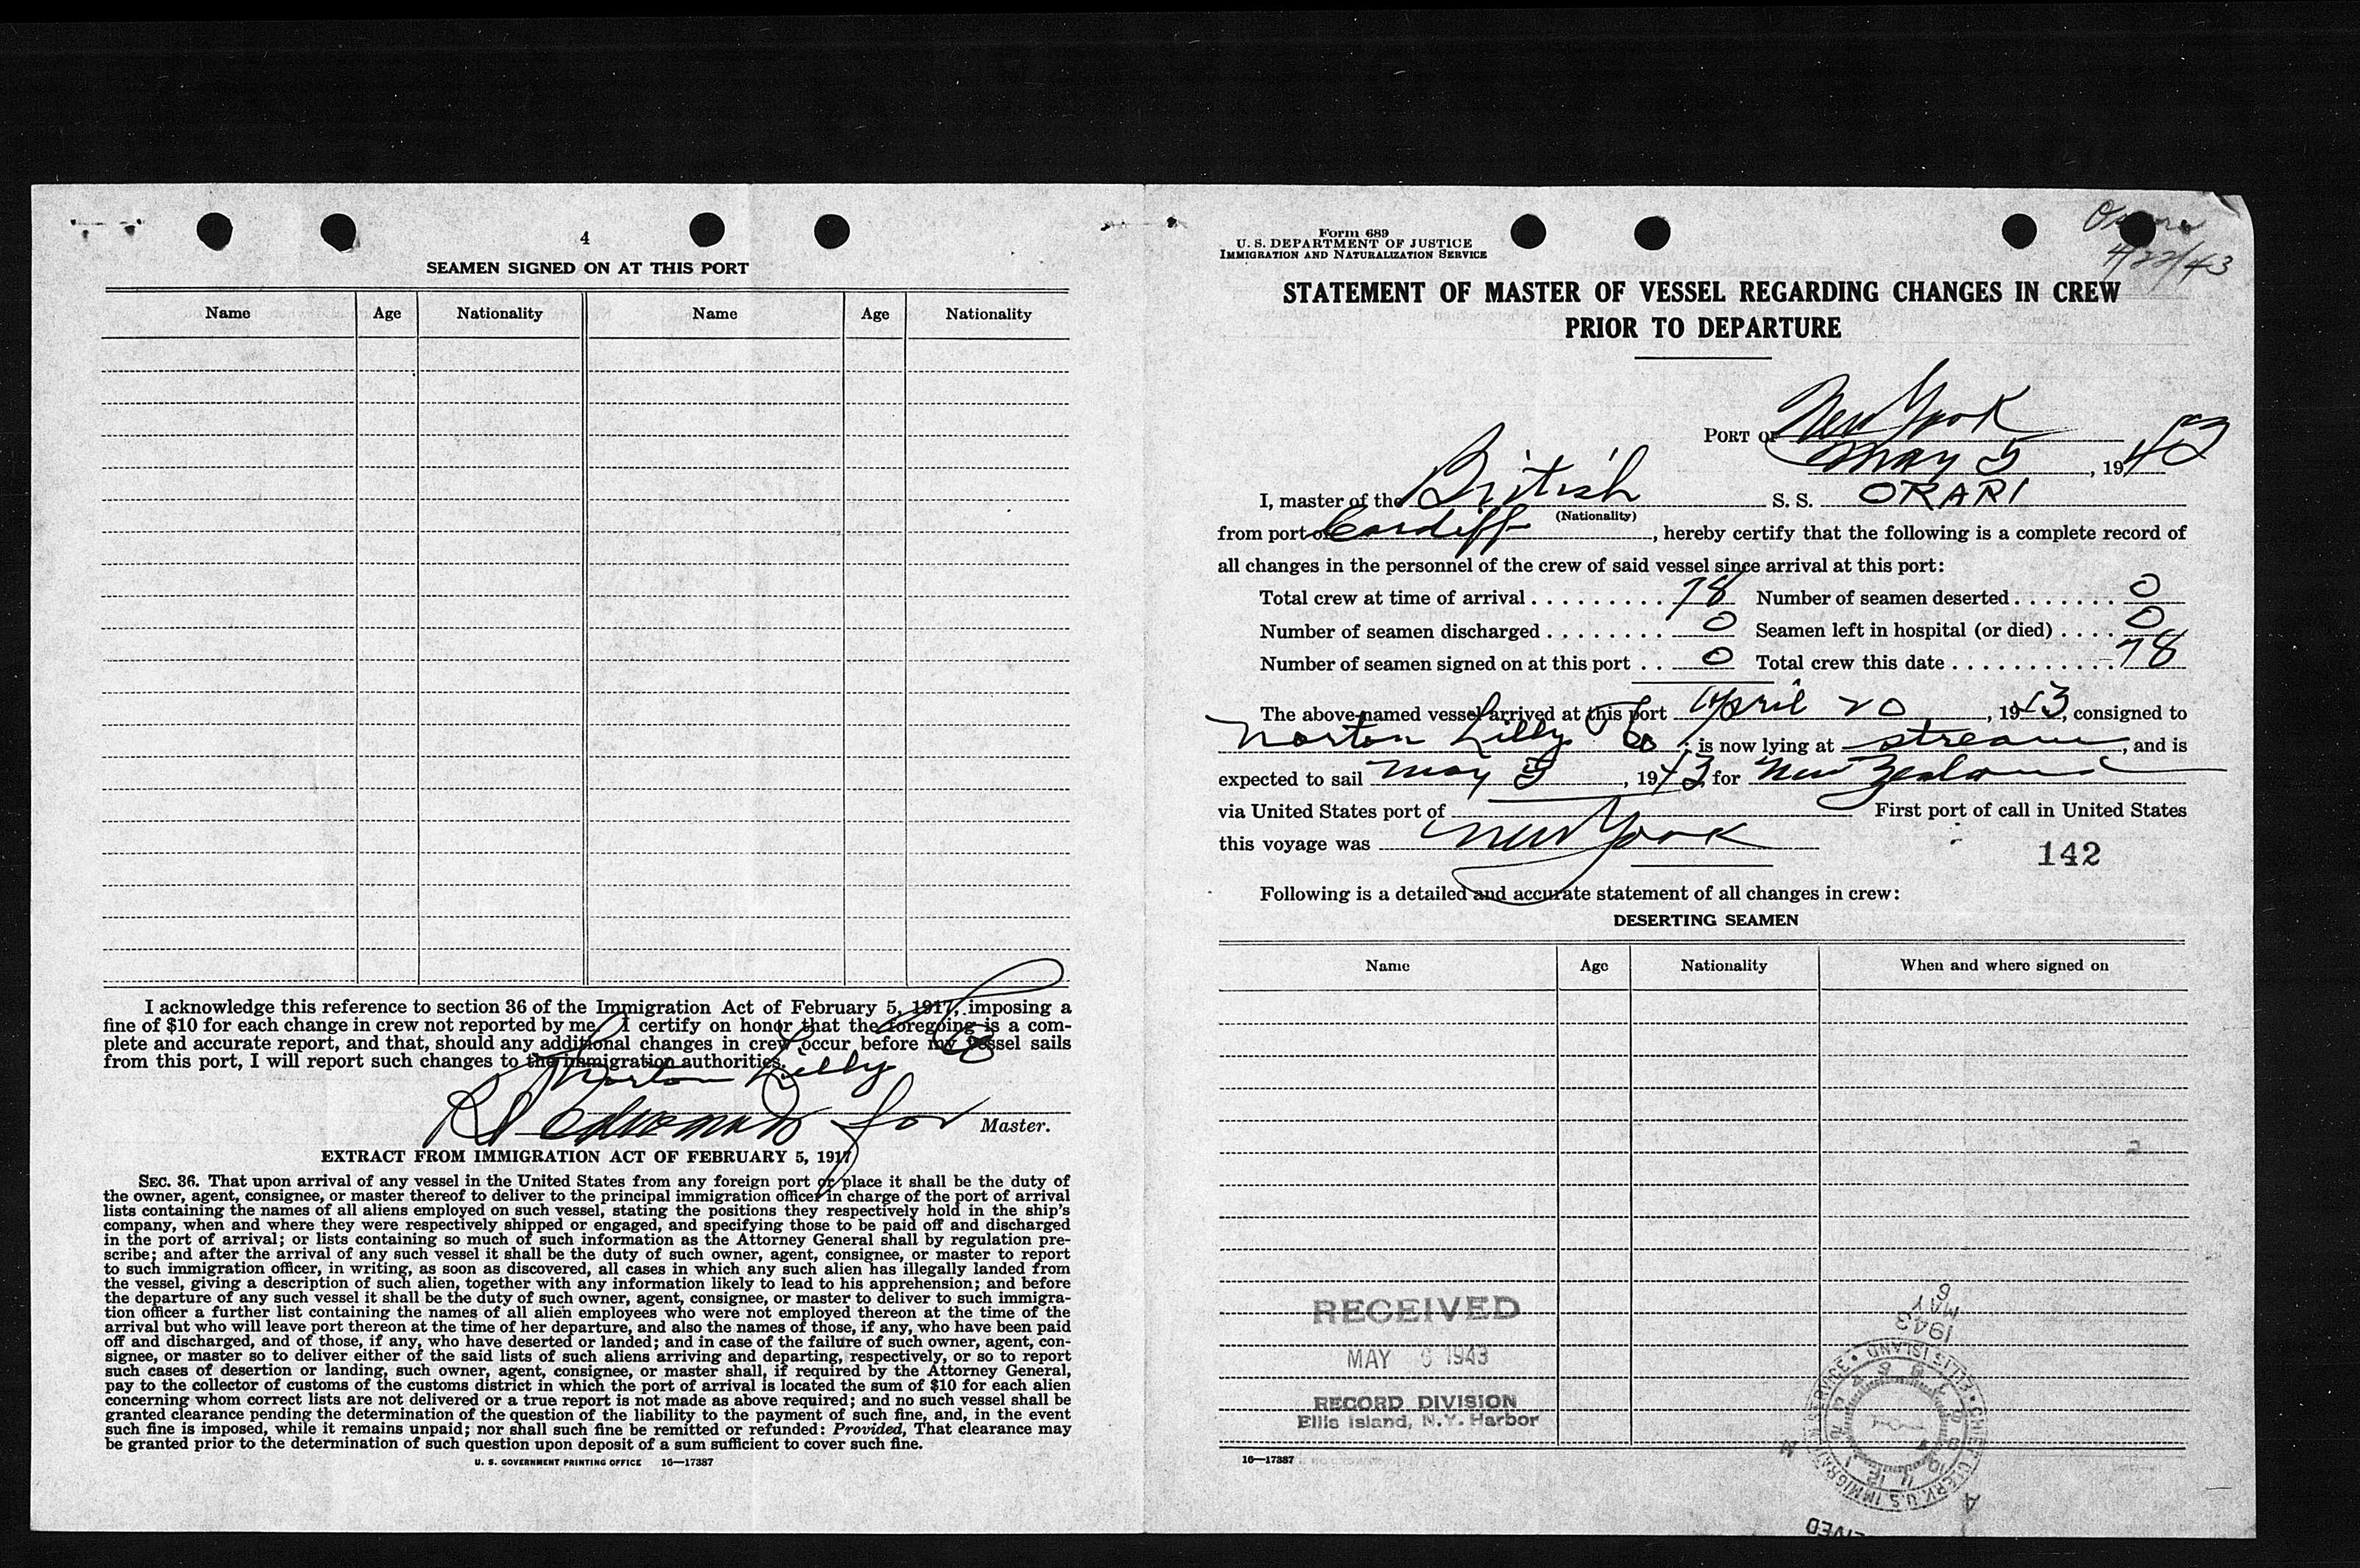 4
SEAMEN SIGNED ON AT THIS PORT
Name Age Nationality Name Age Nationality
I acknowledge this reference to section 36 of the Immigration Act of February 5, 1917, imposing a
fine of $10 for each change in crew not reported by me. I certify on honor that the foregoing is a com-
plete and accurate report, and that, should any additional changes in crew occur before my vessel sails
from this port, I will report such changes to the immigration authorities.
Norton Lilly Co
Edwards for Master.
EXTRACT FROM IMMIGRATION ACT OF FEBRUARY 5, 1917
SEC. 36. That upon arrival of any vessel in the United States from any foreign port or place it shall be the duty of
the owner, agent, consignee, or master thereof to deliver to the principal immigration officer in charge of the port of arrival
lists containing the names of all aliens employed on such vessel, stating the positions they respectively hold in the ship's
company, when and where they were respectively shipped or engaged, and specifying those to be paid off and discharged
in the port of arrival; or lists containing so much of such information as the Attorney General shall by regulation pre-
scribe; and after the arrival of any such vessel it shall be the duty of such owner, agent, consignee, or master to report
to such immigration officer, in writing, as soon as discovered, all cases in which any such alien has illegally landed from
the vessel, giving a description of such alien, together with any information likely to lead to his apprehension; and before
the departure of any such vessel it shall be the duty of such owner, agent, consignee, or master to deliver to such immigra-
tion officer a further list containing the names of all alien employees who were not employed thereon at the time of the
arrival but who will leave port thereon at the time of her departure, and also the names of those, if any, who have been paid
off and discharged, and of those, if any, who have deserted or landed; and in case of the failure of such owner, agent, con-
signee, or master so to deliver either of the said lists of such aliens arriving and departing, respectively, or so to report
such cases of desertion or landing, such owner, agent, consignee, or master shall, if required by the Attorney General,
pay to the collector of customs of the customs district in which the port of arrival is located the sum of $10 for each alien
concerning whom correct lists are not delivered or a true report is not made as above required; and no such vessel shall be
granted clearance pending the determination of the question of the liability to the payment of such fine, and, in the event
such fine is imposed, while it remains unpaid; nor shall such fine be remitted or refunded: Provided, That clearance may
be granted prior to the determination of such question upon deposit of a sum sufficient to cover such fine.
U. S. GOVERNMENT PRINTING OFFICE 16—17387
Form 689
U. S. DEPARTMENT OF JUSTICE
IMMIGRATION AND NATURALIZATION SERVICE
4/22/43
STATEMENT OF MASTER OF VESSEL REGARDING CHANGES IN CREW
PRIOR TO DEPARTURE
PORT OF New York
May 5, 1943
I, master of the British S. S. ORARI
(Nationality)
from port of Cardiff, hereby certify that the following is a complete record of
all changes in the personnel of the crew of said vessel since arrival at this port:
Total crew at time of arrival . . . . . . . . . . 78 Number of seamen deserted . . . . . . . 0
Number of seamen discharged . . . . . . . . 0 Seamen left in hospital (or died) . . . . 0
Number of seamen signed on at this port . . 0 Total crew this date . . . . . . . . . . . . 78
The above-named vessel arrived at this port April 20, 1943, consigned to
Norton Lilly Co; is now lying at stream, and is
expected to sail May 5, 1943, for New Zealand
via United States port of First port of call in United States
this voyage was New York
142
Following is a detailed and accurate statement of all changes in crew:
DESERTING SEAMEN
Name Age Nationality When and where signed on
RECEIVED
MAY 6 1943
RECORD DIVISION
Ellis Island, N.Y. Harbor
1943
MAY
6
CHIEF CLERK U.S. IMMIGRATION SERVICE • ELLIS ISLAND
16—17387